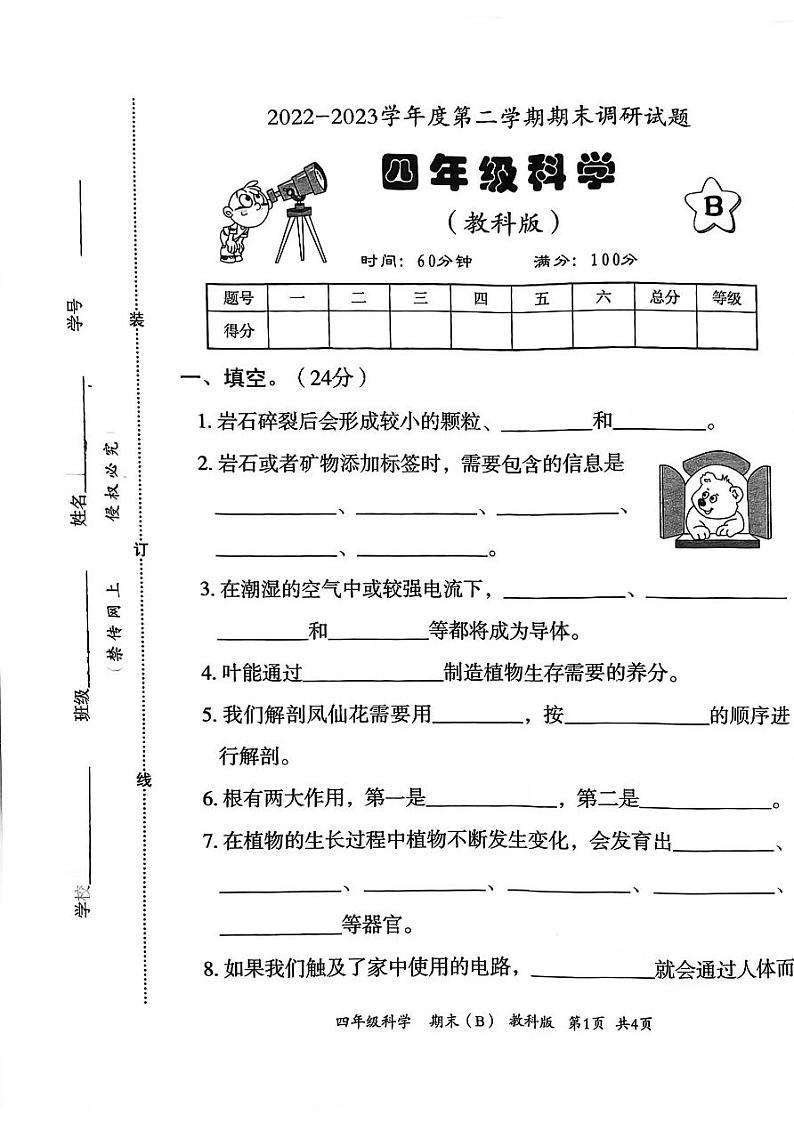 2022-2023学年度第二学期期末调研试题
四年级科学
（教科版）
B
时间：60分钟 满分：100分
题号 一 二 三 四 五 六 总分 等级
得分
一、填空。（24分）
1. 岩石碎裂后会形成较小的颗粒、________和________。
2. 岩石或者矿物添加标签时，需要包含的信息是
________、________、________、
________、________。
3. 在潮湿的空气中或较强电流下，________、________
________和________等都将成为导体。
4. 叶能通过________制造植物生存需要的养分。
5. 我们解剖凤仙花需要用________，按________的顺序进
行解剖。
6. 根有两大作用，第一是________，第二是________。
7. 在植物的生长过程中植物不断发生变化，会发育出________、
________、________、________、________、
________等器官。
8. 如果我们触及了家中使用的电路，________就会通过人体而
四年级科学 期末（B） 教科版 第1页 共4页
学校________ 班级________ 姓名________ 学号________
（禁传网上 侵权必究
装 订 线